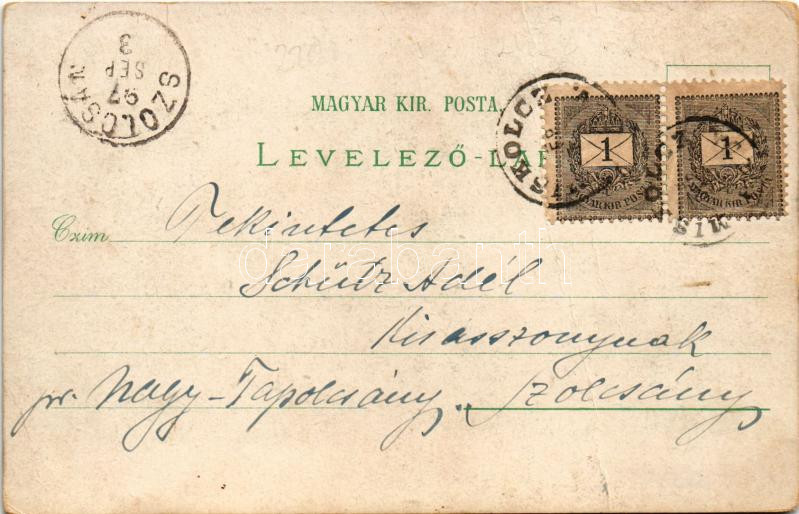 ZSOLCSÁN
97
SEP
3
MAGYAR KIR. POSTA.
LEVELEZŐ-LAP
MISKOLCZ
MISKOLCZ
1 1
MAGYAR KIR. POSTA MAGYAR KIR. POSTA
Czím Tekintetes
Schütz Adél
Kisasszonynak
pr. Nagy-Tapolcsány „ Szolcsány
databaanth